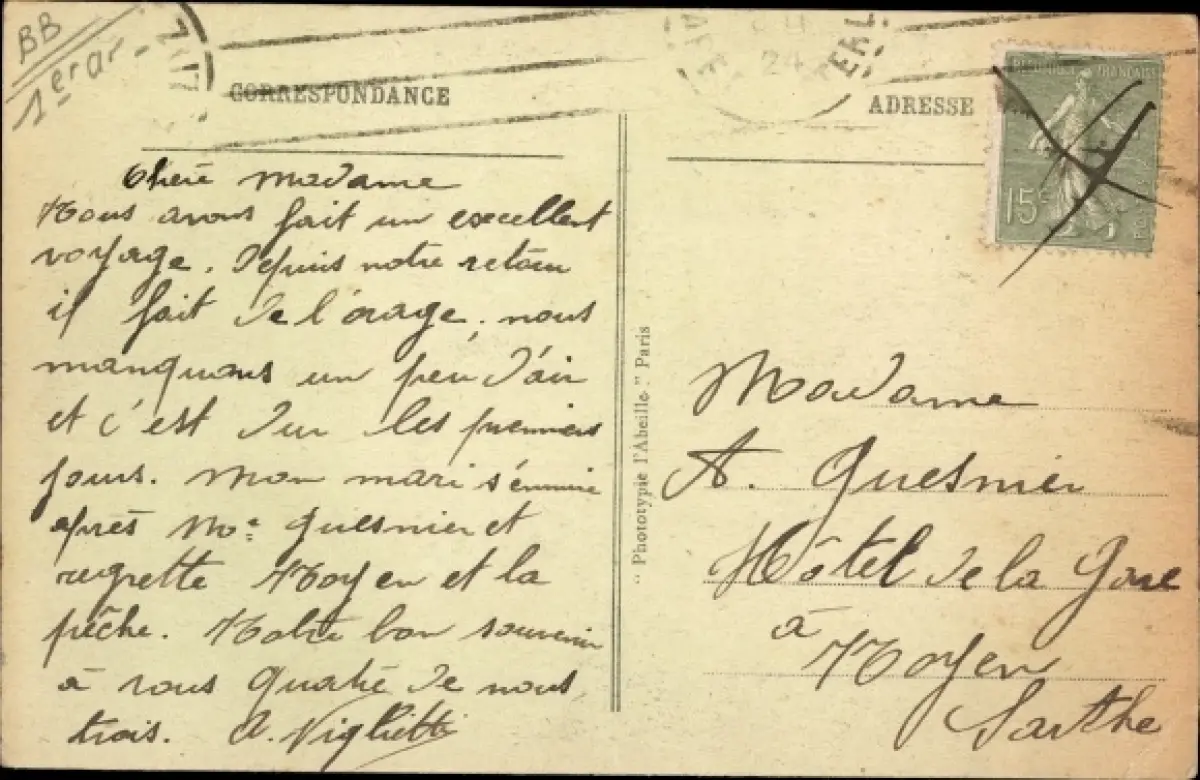 BB
1er ar-
CORRESPONDANCE
Chère Madame
Nous avons fait un excellent
voyage. Depuis notre retour
il fait de l'orage, nous
manquons un peu d'air
et c'est dur les premiers
jours. Mon mari s'ennuie
après Mr Guesnier et
regrette Noyen et la
pêche. Notre bon souvenir
à vous quatre de nous
trois. A. Viglietti
"Phototypie l'Abeille" Paris
24
ADRESSE
REPUBLIQUE FRANÇAISE
15c
Madame
A. Guesnier
Hôtel de la Gare
à Noyen
Sarthe